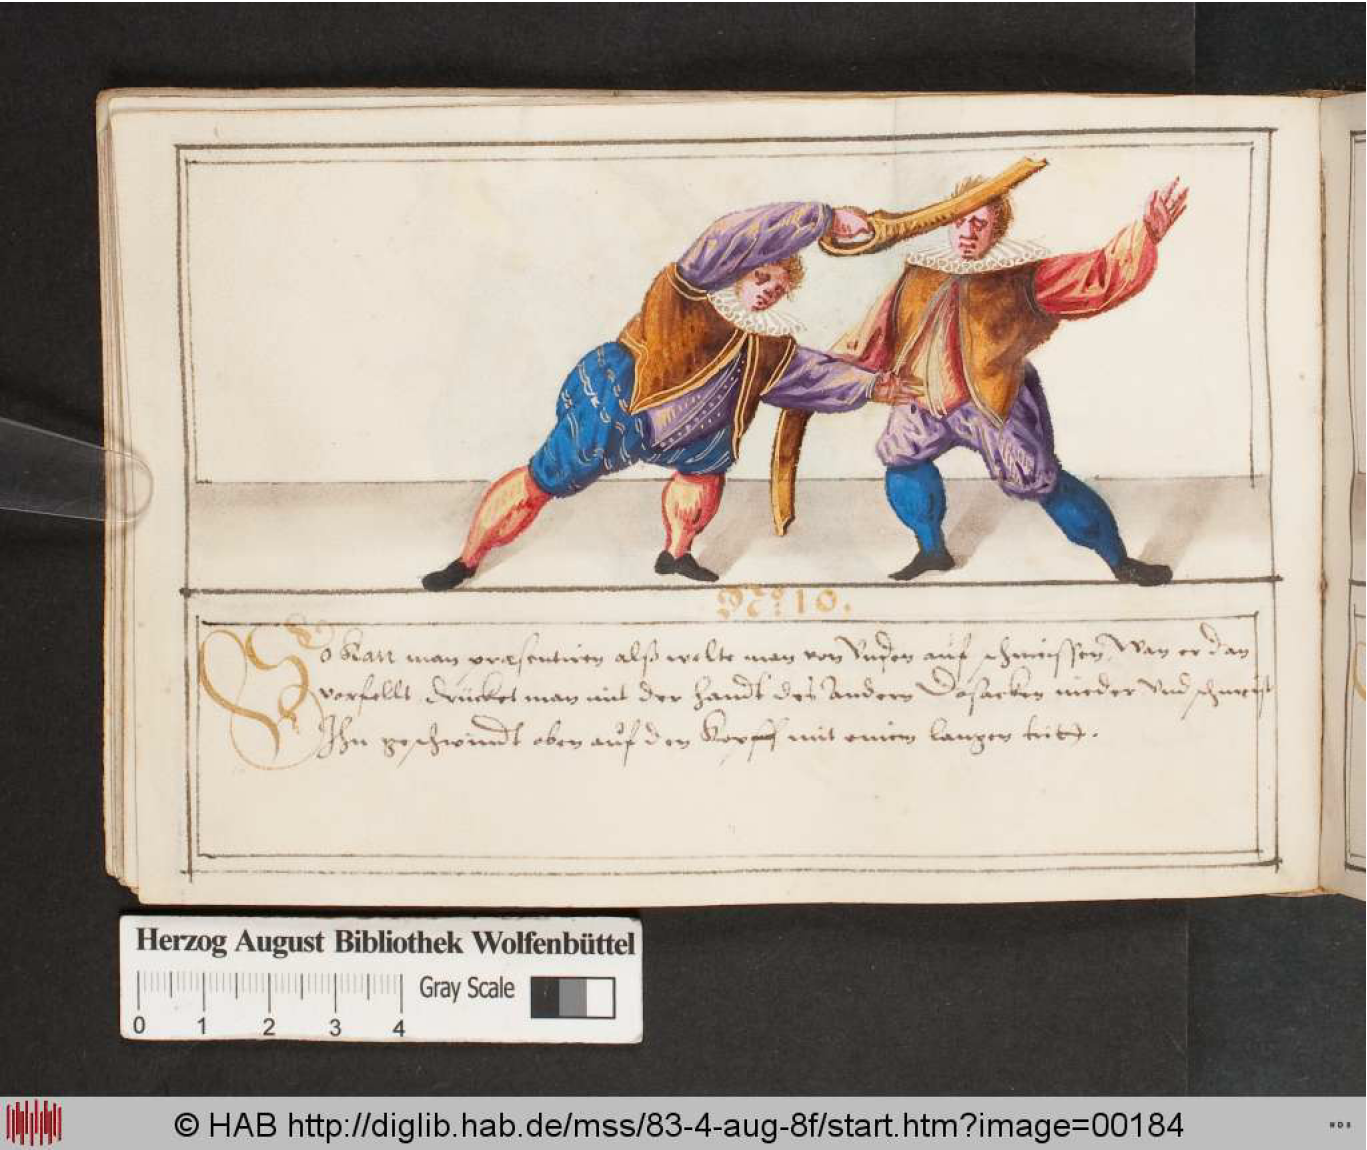 No: 10.
So kan man præsentiren alß wolte man von Unden auf schmeissen, Wan er dan
vorfellt, drücket man mit der handt des Andern Dosacken nieder Und schmeist
Ihn geschwindt oben auf den Kopff mit einem langen tritt.
Herzog August Bibliothek Wolfenbüttel
Gray Scale
0 1 2 3 4
© HAB http://diglib.hab.de/mss/83-4-aug-8f/start.htm?image=00184